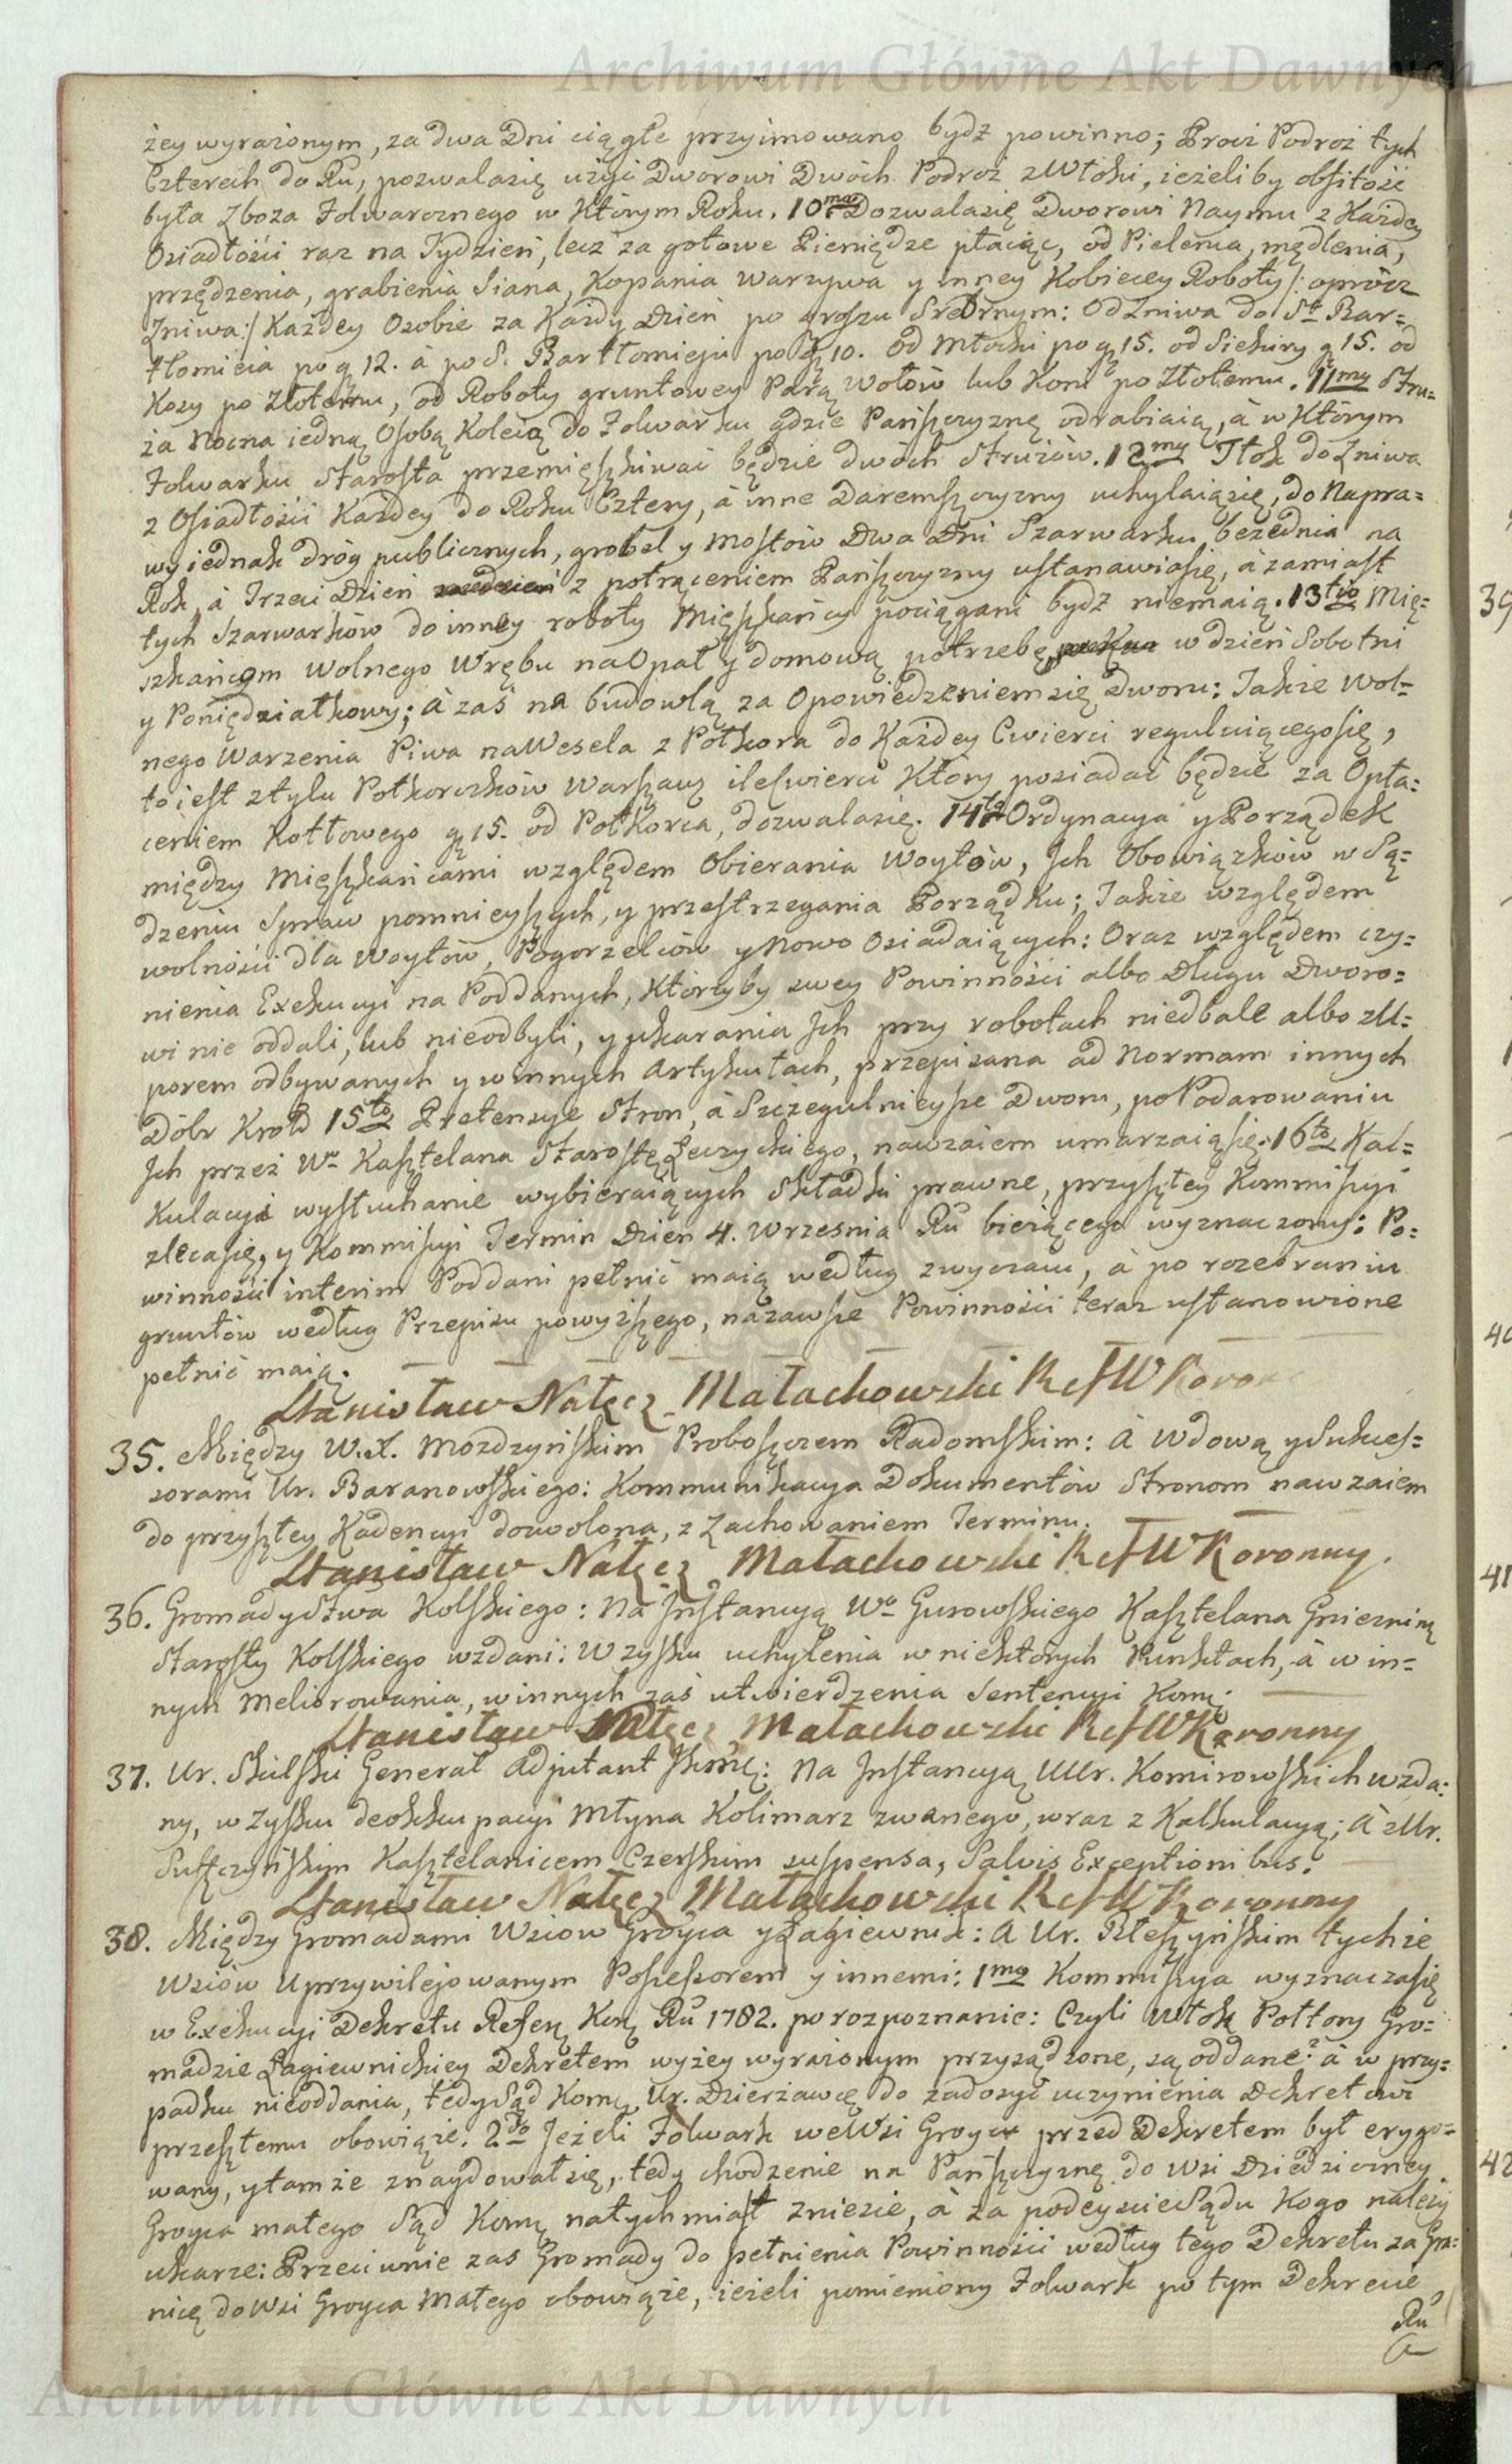 Archiwum Główne Akt Dawnych
żey wyrażonym, za dwa Dni ciągłe przyimowano bydź powinno; Procz Podroż tych
Czterech do Ru, pozwalasię użyć Dworowi Dwoch Podroż z Włoki, ieżeliby obfitość
była Zboża Folwarcznego w Ktorym Roku. 10mo Dozwalasię Dworowi Naymu z Każdey
Osiadłości raz na Tydzień, lecz za gotowe Pieniędze płacąc, od Pielenia, mędlenia,
przędzenia, grabienia Siana, Kopania warzywa y inney Kobiecey Roboty /: oprócz
Zniwa:/ Każdey Osobie za Każdy Dzień po groszu Srebrnym: Od Zniwa do St Bar=
tłomieia po g 12. à po S. Bartłomieju po g 10. Od Młocki po g 15. od Siekiry g 15. od
Kosy po Złotemu, od Roboty gruntowey Parą Wołów lub Koni po Złotemu. 11mo Stru=
ża Nocna iedną Osobą Koleią do Folwarku gdzie Pańszczyznę odrabiaią, à w Którym
Folwarku Starosta przemięszkiwać będzie dwóch Strużów. 12mo Tłok do Zniwa
z Osiadłości Każdey do Roku Cztery, à inne Daremszczyzny uchylaiąsię, do Napra=
wy iednak dróg publicznych, grobel y Mostów Dwa Dni Szarwarku bezednia na
Rok, à Trzeci Dzień z potrąceniem Pańszczyzny ustanawiasię, à zamiast
tych Szarwarków do inney roboty Mięszkańcy pociągani bydź niemaią. 13tio Mię=
szkańcom Wolnego Wrębu na Opał y domową potrzebę w dzień Sobotni
y Poniędziałkowy; à zaś na budowlą za Opowiedzeniem się Dworu: Także Wol=
nego Warzenia Piwa na Wesela z Połkora do Każdey Cwierci reguluiącegosię,
to iest z tylu Połkorczków Warszaw: ile Cwierci Który posiadać będzie za Opła=
ceniem Kotłowego g 15. od Połkorca, dozwalasię. 14to Ordynacya y Porządek
między Mięszkańcami względem Obierania Woytów, Ich Obowiązków w Są=
dzeniu Spraw pomnieyszych, y przestrzegania Porządku; Także względem
wolności dla Woytów, Pogorzelców y Nowo Osiadaiących: Oraz względem czy=
nienia Exekucyi na Poddanych, Którzyby swey Powinności albo Długu Dworo=
wi nie oddali, lub nieodbyli, y ukarania Ich przy robotach niedbale albo z U=
porem odbywanych y w innych Artykułach, przepisana ad Normam innych
Dóbr Krold 15to Pretensye Stron, à Szczegulnieysze Dworu, po Podarowaniu
Ich przez Wo Kasztelana Starostę Łeczyckiego, nawzaiem umarzaiąsię. 16to Kal=
kulacyi wysłuchanie wybieraiących Składki prawne, przyszłey Kommissyi
zlecasię, y Kommissyi Termin Dzień 4. Wrzesnia Ru bieżącego wyznaczony: Po=
winności interim Poddani pełnić maią według zwyczaiu, à po rozebraniu
gruntów według Przepisu powyższego, nazawsze Powinności teraz ustanowione
pełnić maią.
Stanisław Nałęcz Małachowski RefWKoron
35. Między W. X. Mozdzyńskim Proboszczem Radomskim: à Wdową y Sukces=
sorami Ur. Baranowskiego: Kommunikacya Dokumentów Stronom nawzaiem
do przyszłey Kadencyi dozwolona, z Zachowaniem Terminu.
Stanisław Nałęcz Małachowski RefWKoronny.
36. Gromady Stwa Kolskiego: Na Instancyą Wo Gurowskiego Kasztelana Gnieznin
Starosty Kolskiego wzdani: W Zysku uchylenia w niektórych Punktach, à w in=
nych Meliorowania, w innych zaś utwierdzenia Sentencyi Komę.
Stanisław Nałęcz Małachowski RefWKoronny
37. Ur. Skilski Generał Adjutant JKmę: Na Instancyą UUr. Komirowskich wzda=
ny, w Zysku deokkupacyi Młyna Kolimarz zwanego, wraz z Kalkulacyą; à z Ur.
Suffczyńskim Kasztelanicem Czerskim suspensa, Salvis Exceptionibus.
Stanisław Nałęcz Małachowski RefWKoronny
38. Między Gromadami Wsiow Groyca y Łagiewnik: à Ur. Błeszyńskim tychże
Wsiów Uprzywilejowanym Possessorem y innemi: 1mo Kommissya wyznaczasię
w Exekucyi Dekretu Referę Korę Ru 1782. po rozpoznanie: Czyli Włok Połtory Gro=
madzie Łagiewnickiey Dekretem wyżey wyrażonym przysądzone, są oddane? à w przy=
padku nieoddania, tedy Sąd Komę Ur. Dzierżawcę do zadosyć uczynienia Dekretowi
przeszłemu obowiąże. 2do Jeżeli Folwark we Wsi Groycu przed Dekretem był erygo=
wany, y tamże znaydował się, tedy chodzenie na Pańszczyznę do Wsi Dziedziczney
Groyca małego Sąd Komę natychmiast zniesie, à za podeyscie Sądu Kogo należy
ukarze: Przeciwnie zaś Gromady do pełnienia Powinności według tego Dekretu za Gra=
nicę do Wsi Groyca Małego obowiąże, ieżeli pomieniony Folwark po tym Dekrecie
Ru
39
40
41
42
Archiwum Główne Akt Dawnych